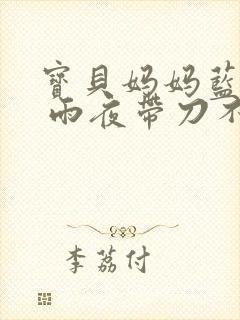 寶貝妈妈藍
雨夜帶刀不
李荔付